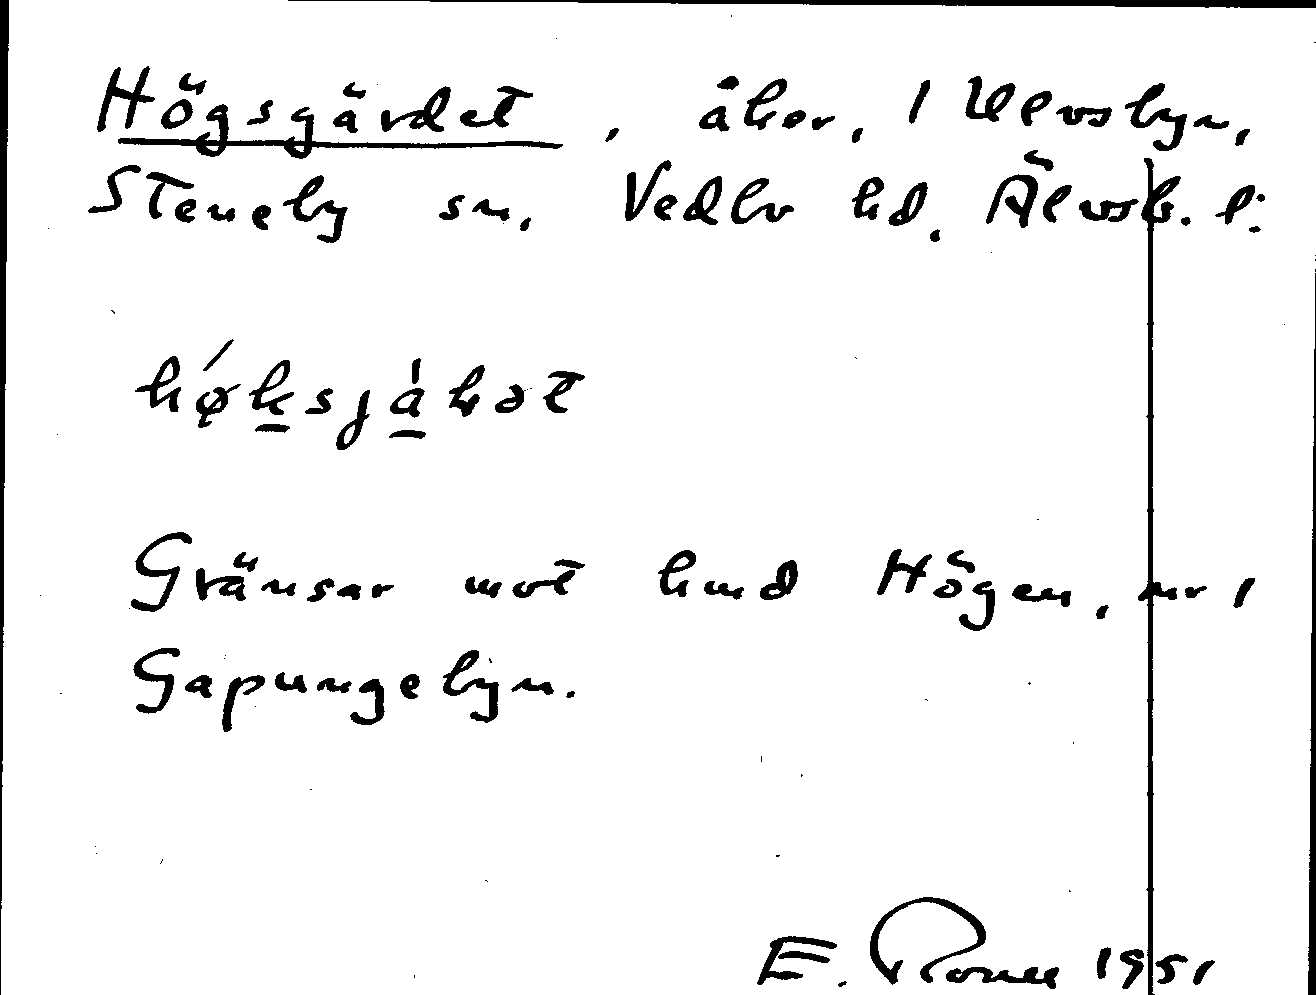 Högsgärdet, åker, 1 Ulvsbyn,
Steneby sn, Vedbo hd. Älvsb. l:
Gränsar mot hmd Högen, nr 1
Gapungebyn.
E. 1951